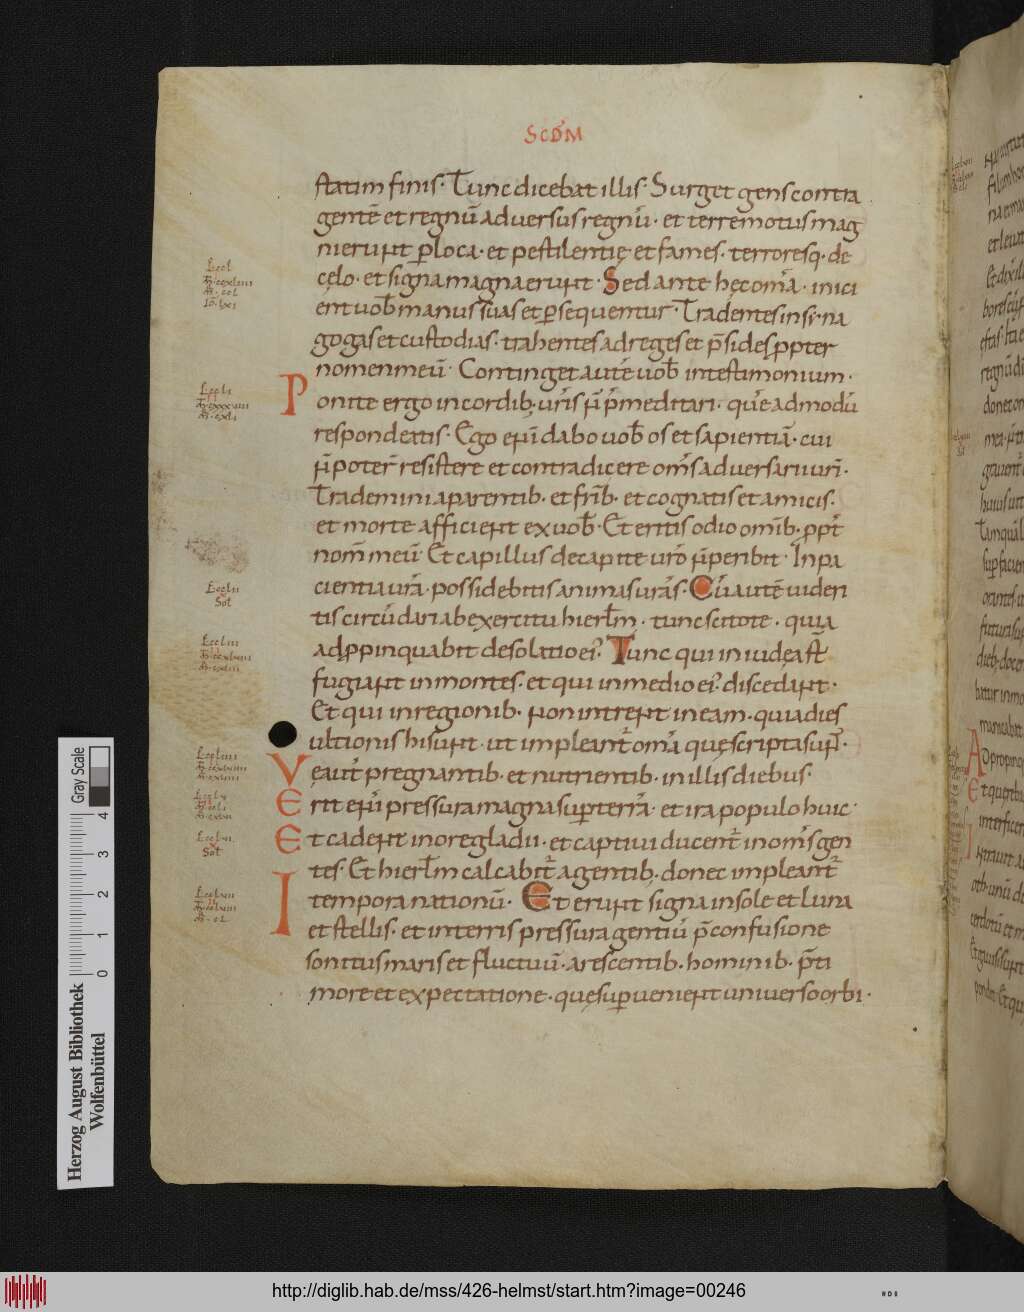 SCDM
statim finis. Tunc dicebat illis. Surget gens contra
gentē et regnū adversus regnū. et terremotus mag
ni erunt p loca. et pestilentię et fames. terroresq. de
cęlo. et signa magna erunt. Sed ante hęc om̄a. inici
ent uob manus suas et psequentur. Tradentes in sina
gogas et custodias. trahentes ad reges et p̄sides ppter
nomen meū. Continget autē uob in testimonium.
Ponite ergo in cordib. ur̄is n̄ p̄meditari. quēadmodū
respondeatis. Ego enī dabo uob os et sapientiā. cui
n̄ poter̄ resistere et contradicere om̄s adversarii ur̄i.
Trademini a parentib. et fr̄ib. et cognatis et amicis.
et morte afficient ex uob. Et eritis odio om̄ib. ppt̄
nom̄ meū. Et capillus de capite ur̄o n̄ peribit. In pa
cientia ur̄a. possidebitis animas ur̄as. Cū autē videri
tis circūdari ab exercitu hierlm. tunc scitote. quia
adppinquabit desolatio ei'. Tunc qui in iudęa st̄
fugiant in montes. et qui in medio ei' discedant.
Et qui in regionib. non intrent in eam. quia dies
ultionis hi sunt. ut impleant̄ om̄a quę scripta sun̄.
Vę aūt pregnantib. et nutrientib. in illis diebus.
Erit eni pressura magna sup terrā. et ira populo huic.
Et cadent in ore gladii. et captivi ducent̄ in om̄s gen
tes. Et hierlm calcabit̄ a gentib. donec impleant̄
tempora nationū. Et erunt signa in sole et luna
et stellis. et in terris pressura gentiū p̄ confusione
sonitus maris et fluctuū. arescentib. hominib. p̄ ti
more et expectatione. quę supvenient universo orbi.
Sol
Sol
Gray Scale
0 1 2 3 4
Herzog August Bibliothek
Wolfenbüttel
http://diglib.hab.de/mss/426-helmst/start.htm?image=00246